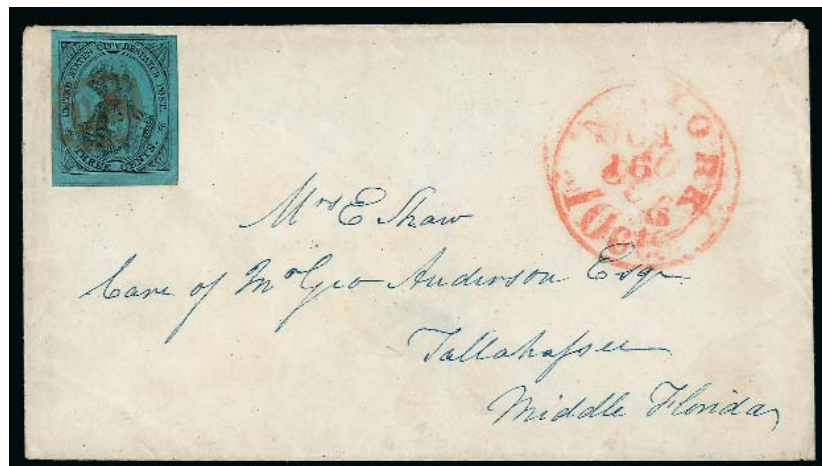 UNITED STATES CITY DESPATCH POST.
THREE CENTS.
YORK
10 cts
Mrs E Shaw
Care of Mr Geo Anderson Esqr
Tallahassee
Middle Florida